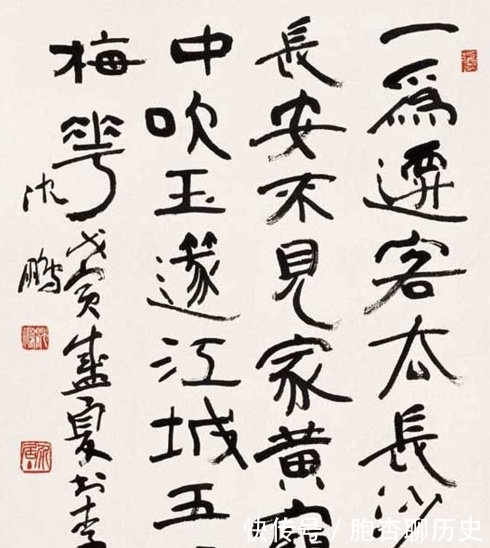 一為遷客去長沙
長安不見家黄
中吹玉篴江城五
梅花 戊寅盛夏书李
沈鹏
快传号 / 胞杏聊历史